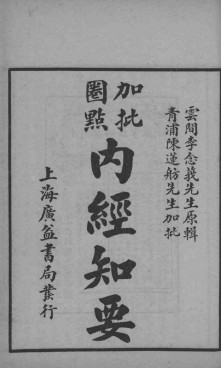 雲間李念莪先生原輯
青浦陳蓮舫先生加批
加批
圈點
內經知要
上海廣益書局發行